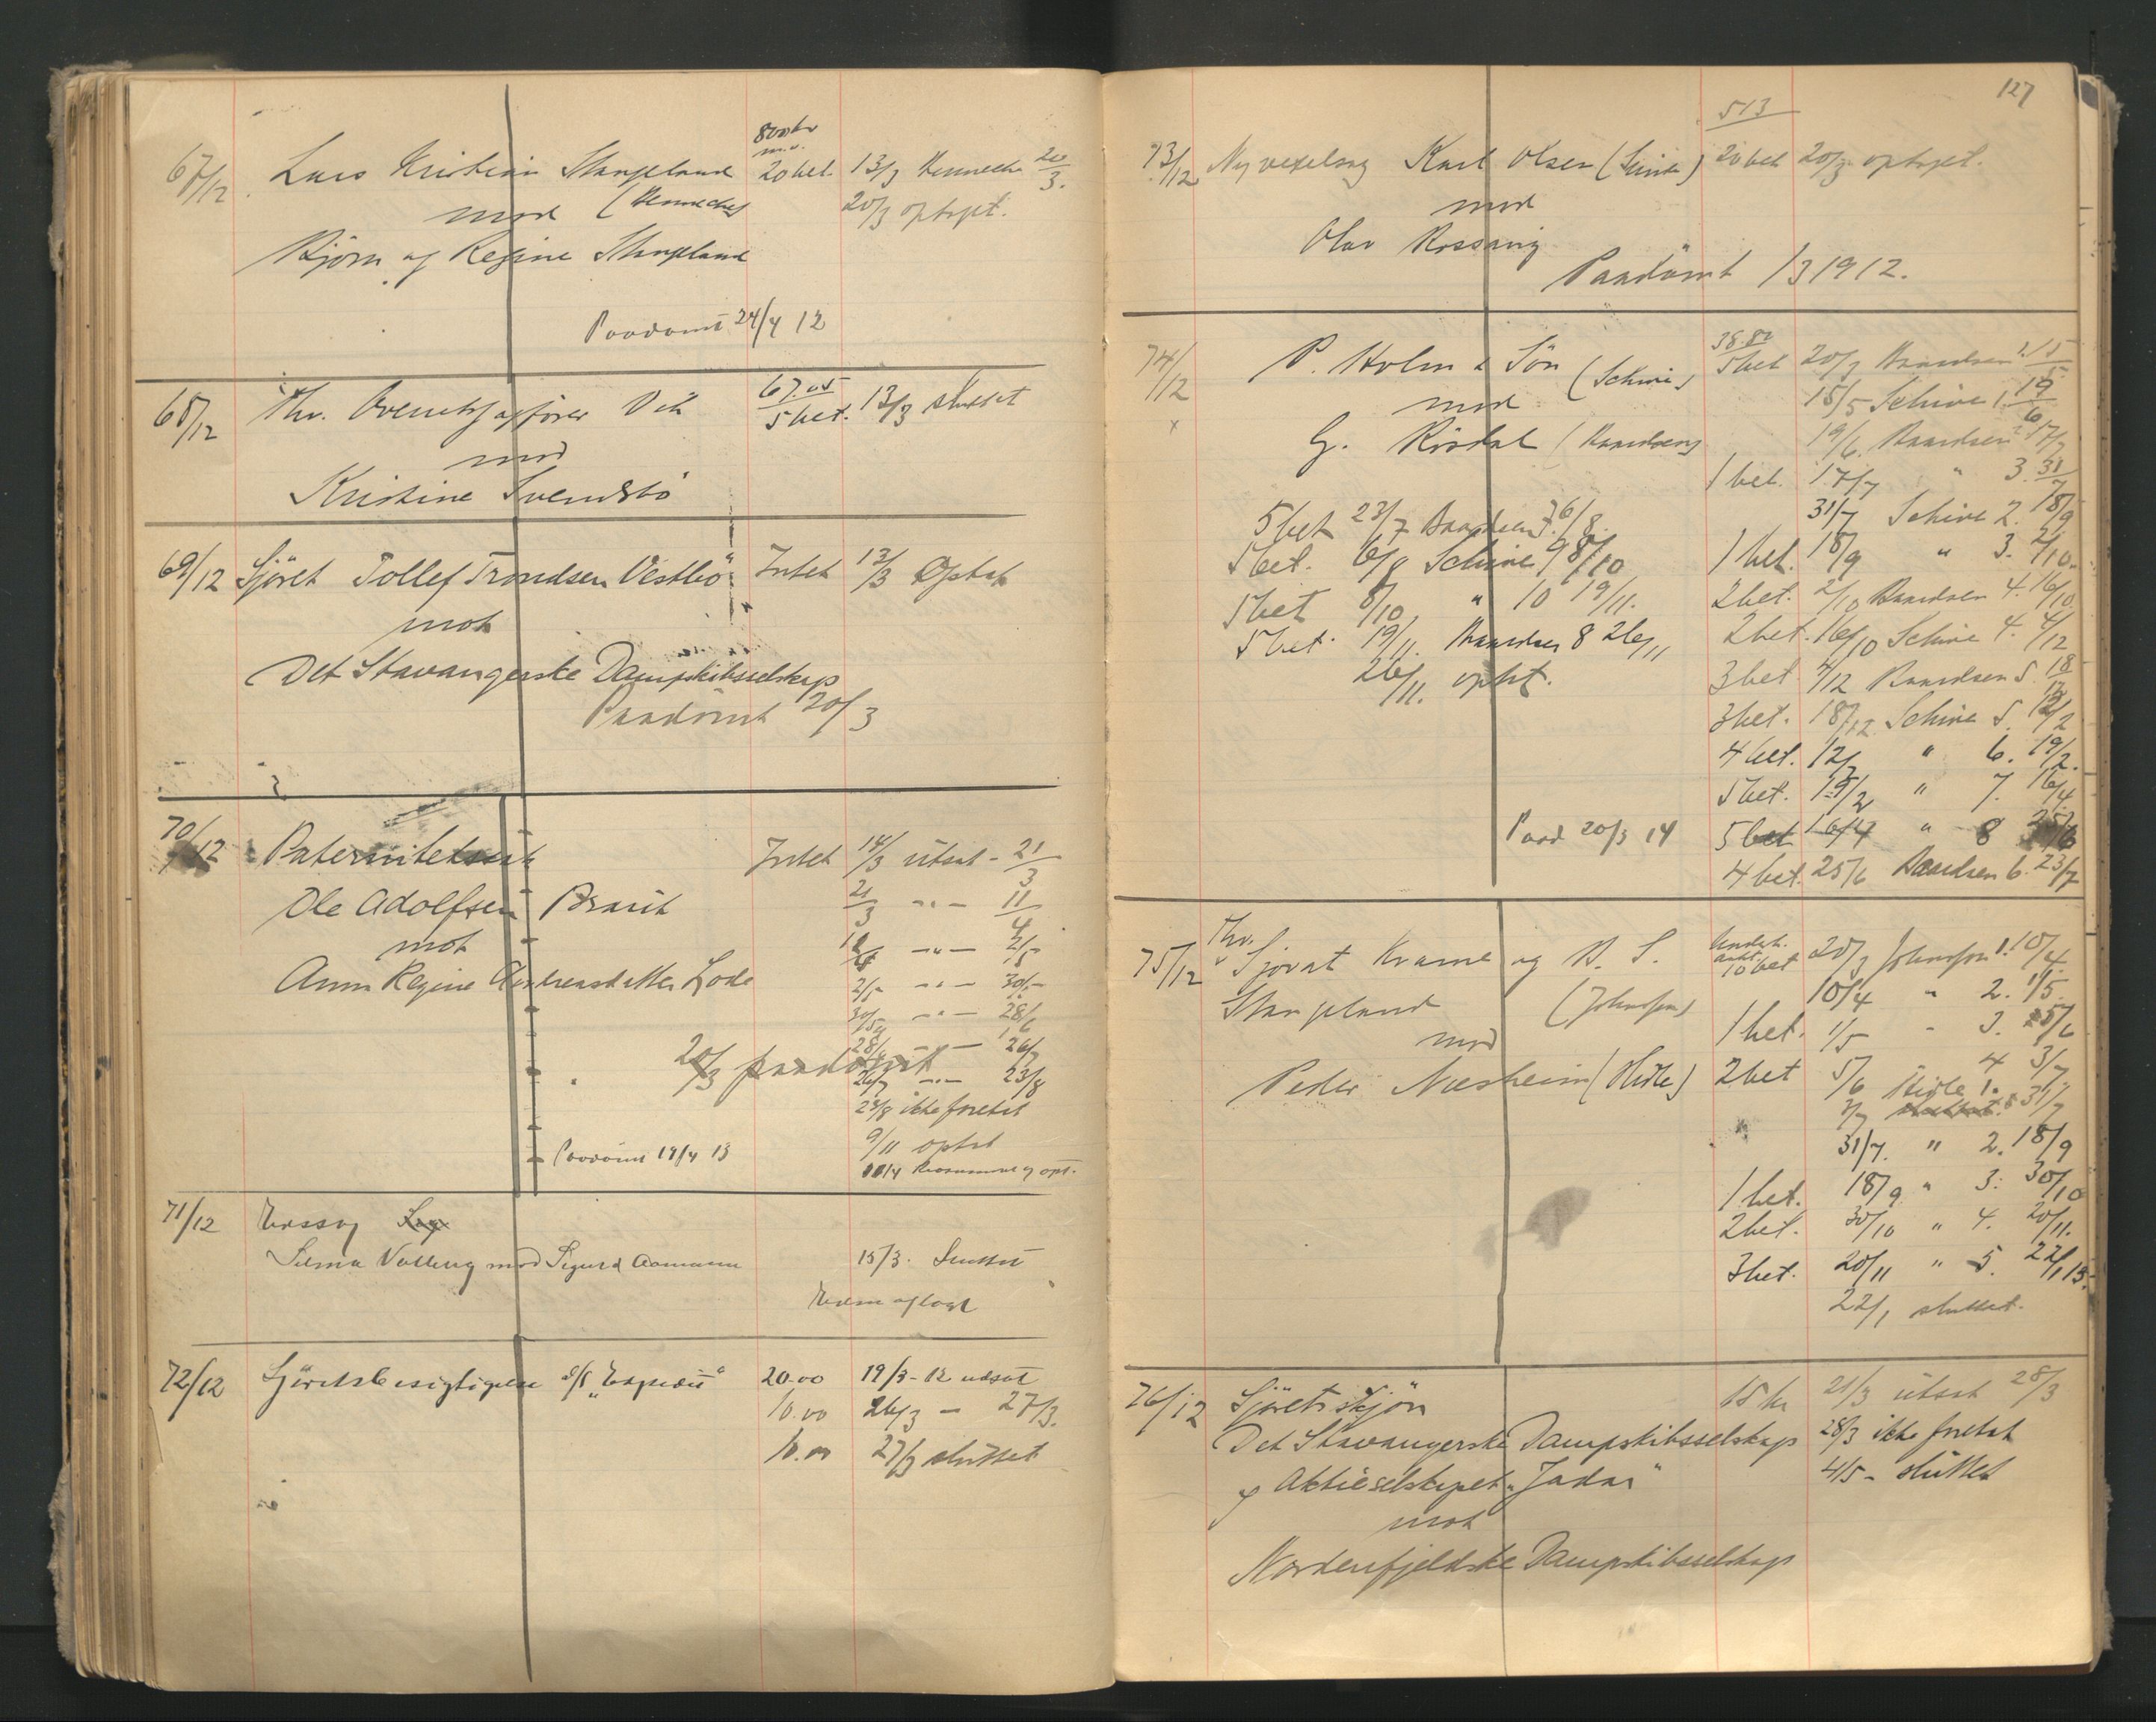 67/12 Lars Kristian Stangeland 800 kr m.v. 20 bet. 13/3 Hennechen 20/3.
mod (Hennechen) 20/3 optaget.
Bjørn og Regine Stangeland
Paadömt 24/4 12
68/12 Thv. 67.05 5 bet. 13/3 sluttet
mod
Kristine Svendsbö
69/12 Sjöret Tollef Trondsen Vestbö Intet 13/3 Optat
mot
Det Stavangerske Dampskibsselskap
Paadömt 20/3
70/12 Paternitetssak Intet 14/3 utsat - 21/3
Ole Adolfsen Braut 21/3 -"- 11/4
mot -"- 2/5
Anna Regine Andreasdatter Lode 2/5 -"- 30/5
30/5 -"- 28/6
28/6 -"- 26/7
20/3 paadömt 26/7 -"- 23/8
23/8 ikke foretat
9/11 optat
Paadömt 19/4 13
71/12
Selma Valberg mod Sigurd Aamann 15/3. Sluttet
72/12 Sjöretsbesigtigelse 20.00 19/3-12 udsat
10.00 26/3 — 27/3.
10.00 27/3 sluttet
127
513
73/12 Ny vexelsag Karl Olsen (Schive) 20 bet 20/3 optaget.
mod
Olav Rossavig
Paadömt /3 1912.
74/12 P. Holm & Sön (Schive) 38.80 5 bet 20/3 Baardsen 1. 15/5
mod 15/5 Schive 1. 19/6
x G. Risdal (Baardsen) 19/6. Baardsen 2 17/7
1 bet. 17/7 " 3. 31/7
31/7 Schive 2. 18/9
5 bet 23/7 Baardsen 7. 6/8.
1 bet. 18/9 " 3. 2/10.
5 bet. 6/8 Schive 9 8/10
2 bet. 2/10 Baardsen 4. 16/10
5 bet 8/10 " 10 19/11.
2 bet. 16/10 Schive 4. 4/12
5 bet. 19/11. Baardsen 8 26/11
3 bet 4/12 Baardsen 5. 18/12
26/11. optat.
3 bet. 18/12 Schive 5. 12/2
4 bet. 12/2 " 6. 19/2.
5 bet. 19/2 " 7. 16/4.
Paad 20/3 14 5 bet 16/4 " 8 25/6
4 bet. 25/6 Baardsen 6. 23/7
75/12 Thv. Sjovat Krame og B. S. 10 bet 20/3 Johnsen 1. 10/4.
Stangeland (Johnsen) 10/4 " 2. 1/5.
mod 1 bet. 1/5 " 3. 5/6
Peder Næsheim (Hidle) 2 bet 5/6 4 3/7
3/7 Hidle 1. 31/7
31/7. " 2. 18/9
1 bet. 18/9 " 3. 30/10
2 bet. 30/10 " 4. 20/11.
3 bet. 20/11 " 5. 22/1 13.
22/1 sluttet.
76/12 Sjöretsskjön 15 kr 21/3 utsat 28/3
Det Stavangerske Dampskibsselskap 28/3 ikke foretat
og Aktieselskapet "Jadar" 4/5 - sluttet
mot
Nordenfjeldske Dampskibsselskap